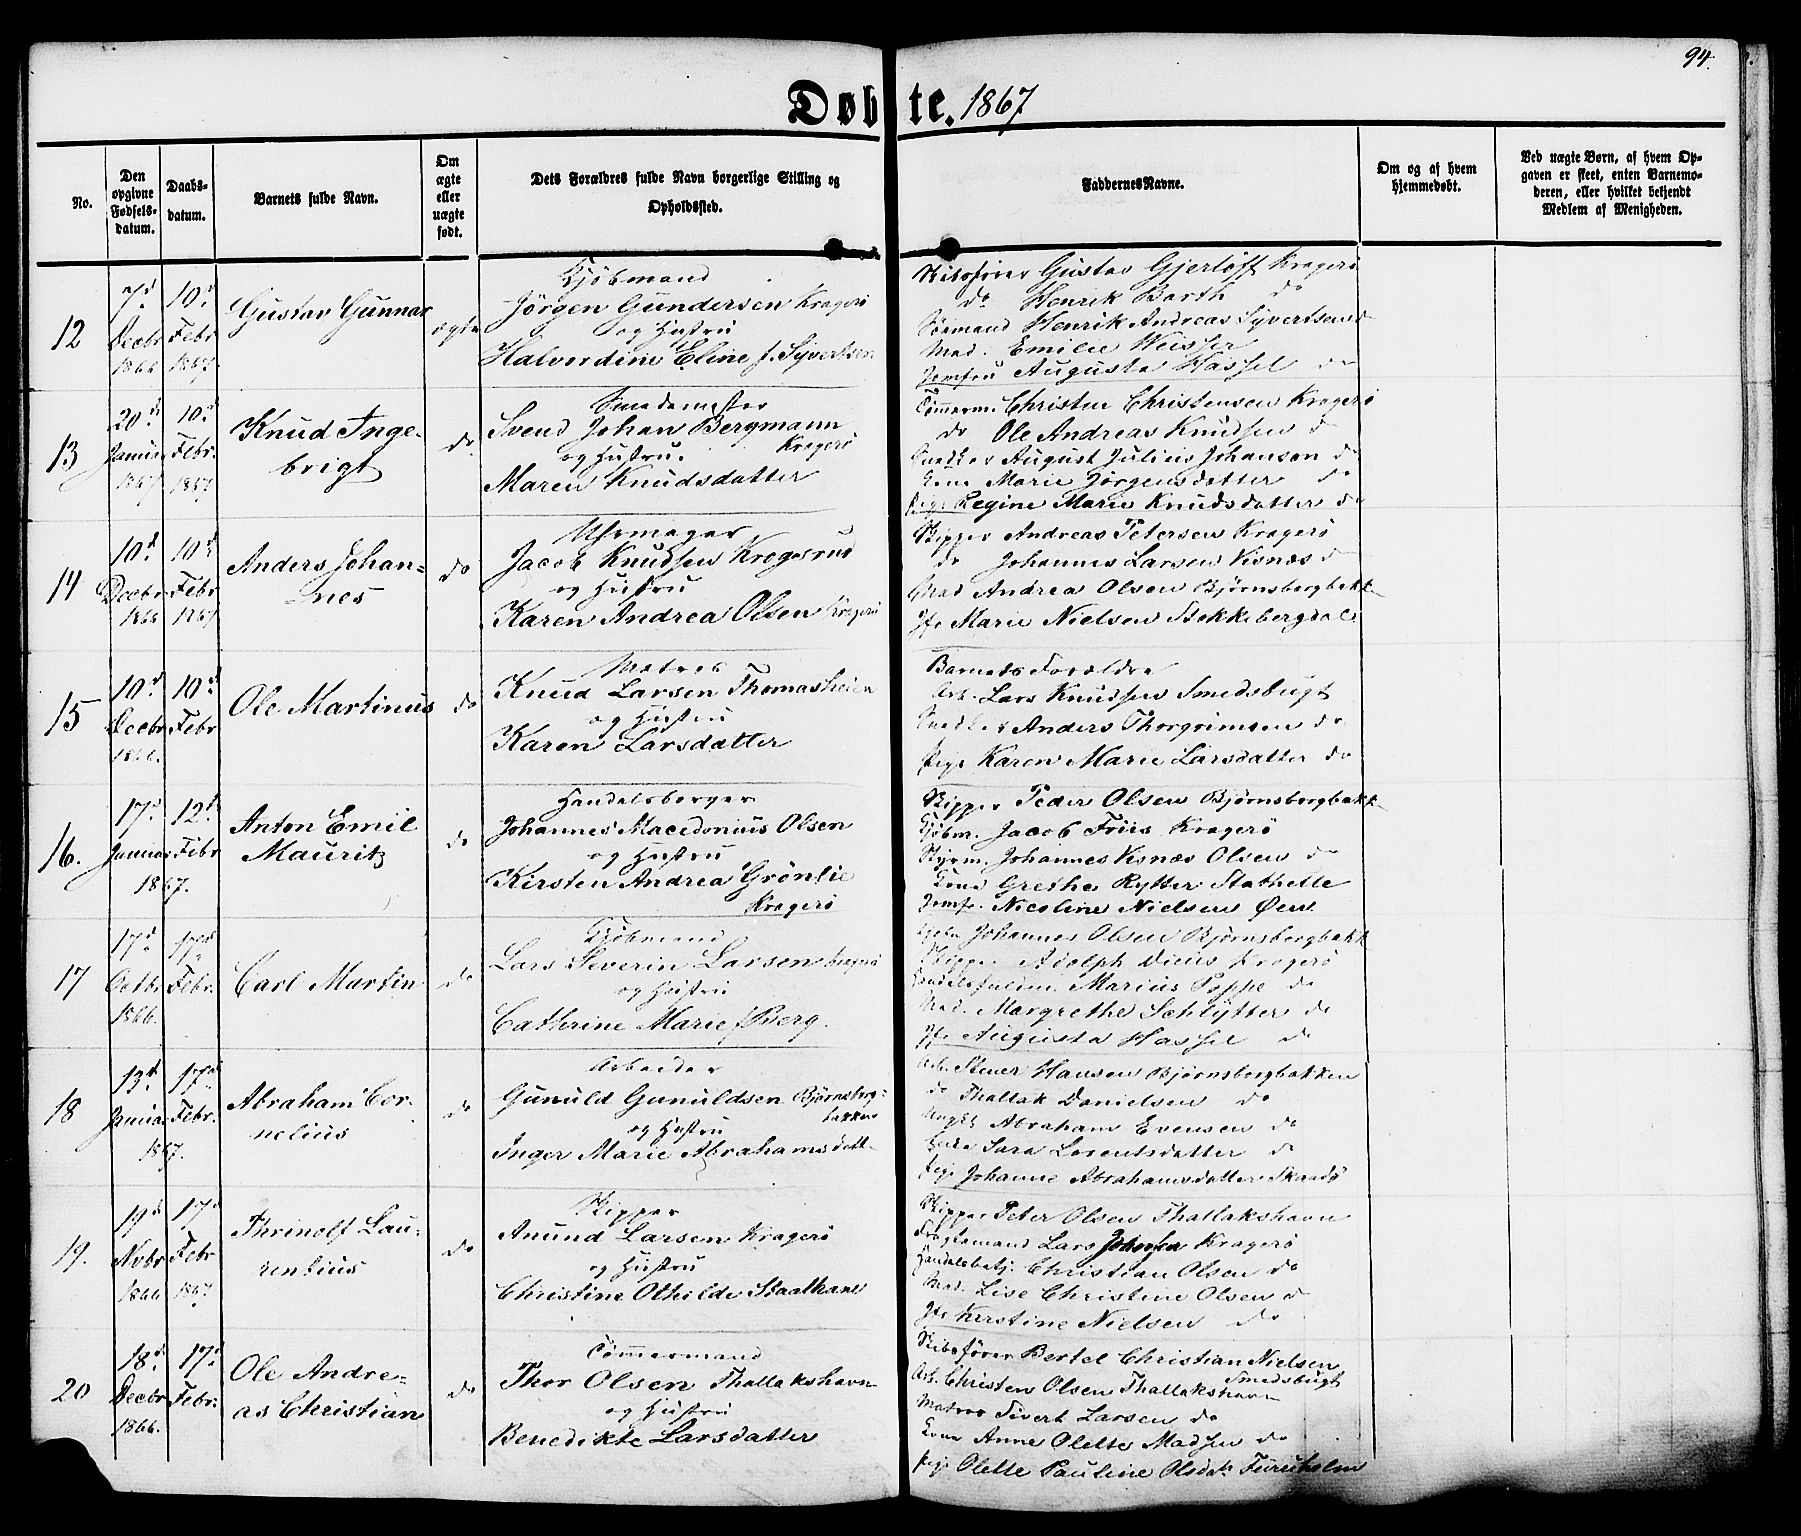 94.
Døbte. 1867
No.
Den opgivne Fødselsdatum.
Daabsdatum.
Barnets fulde Navn.
Om ægte eller uægte født.
Dets Forældres fulde Navn borgerlige Stilling og Opholdssted.
Faddernes Navne.
Om og af hvem hjemmedøbt.
Ved uægte Børn, af hvem Opgaven er skeet, enten Barnemoderen, eller hvilket bekjendt Medlem af Menigheden.
12
7d Decbr 1866
10d Febr 1867
Gustav Gunnar
ægte
Kjøbmand
Jörgen Gundersen Kragerö
og Hustru
Halvordine Eline f. Syvertsen
Skibsfører Gustav Gjerløff Kragerö
do Henrik Barth do
Sømand Henrik Andreas Syvertsen do
Mad. Emilie Weisser
Jomfru Augusta Hassel do
13
20d Januar 1867
10d Febr. 1867
Knud Inge-
brigt
do
Smedemester
Svend Johan Bergmann
og Hustru. Kragerö
Maren Knudsdatter
Tömmerm. Christen Christensen Kragerö
do Ole Andreas Knudsen do
Snedker August Julius Johansen do
Kone Marie Jörgensdatter do
Pige Regine Marie Knudsdatter do
14
10d Decbr 1866
10d Febr 1867
Anders Johan-
nes
do
Uhrmager
Jacob Knudsen Kragerö
og Hustru
Karen Andrea Olsen Kragerö
Skipper Andreas Petersen Kragerö
do Johannes Larsen Visnæs do
Mad Andrea Olsen Björnsbergbakk
Jfr Marie Nielsen Stokkebergdal
15
10d Decbr 1866.
10d Febr
Ole Martinus
do
Matros
Knud Larsen Thomasheien
og Hustru
Karen Larsdatter
Barnets Forældre
Arb. Lars Knudsen Smedsbugt
Snedker Anders Thorgrimsen do
Pige Karen Marie Larsdatter do
16.
17d Januar
12d Febr
1867.
Anton Emil
Mauritz
do
Handelsborger
Johannes Macedonius Olsen
og Hustru
Kirsten Andrea Grönlie
Kragerö
Skipper Peder Olsen Björnsbergbakk
Kjøbm. Jacob Friis Kragerö
Styrm. Johannes Visnæs Olsen do
Kone Grethe Rytter Stathelle
Jomfr. Nicoline Nielsen Øen
17
17d Octbr 1866.
17d Febr.
Carl Martin
do
Kjøbmand
Lars Severin Larsen Kragerö
og Hustru
Cathrine Marie f. Berg.
Johannes Olsen Björnsbergbakk
Skipper Adolph Dicus Kragerö
Marius Poppe do
Mad. Margrethe Schlytter do
Jfr Augusta Hassel do
18
13d Januar
17d Febr.
1867.
Abraham Cor-
nelius
do
Arbeider
Gunuld Gunuldsen Björnsberg-
bakken
og Hustru
Inger Marie Abrahamsdatt.
Arb. Stener Hansen Björnsbergbakken
do Thallak Danielsen do
Ungk. Abraham Evensen do
Enke Sara Lorentsdatter do
Pige Johanne Abrahamsdatter Skaadö
19.
19d Novbr 1866
17d Febr 1867
Thrinolf Lau-
rentius
do
Skipper
Anund Larsen Kragerö
og Hustru
Christine Othilde Staalhane
Skipper Peter Olsen Thallakshavn
Fragtemand Lars Johnsen Kragerö
Handelsbetj. Christian Olsen do
Mad. Lise Christine Olsen do
Jfr Kirstine Nielsen do
20
18d Decbr 1866.
17d Febr.
Ole Andre-
as Christian
do
Tömmermand
Thor Olsen Thallakshavn
og Hustru
Benedikte Larsdatter
Skibsfører Bertel Christian Nielsen
Smedsbugt
Arb. Christen Olsen Thallakshavn
Matros Sivert Larsen do
Kone Anne Olette Madsen do
Pige Olette Pauline Olsdatr Furuholm